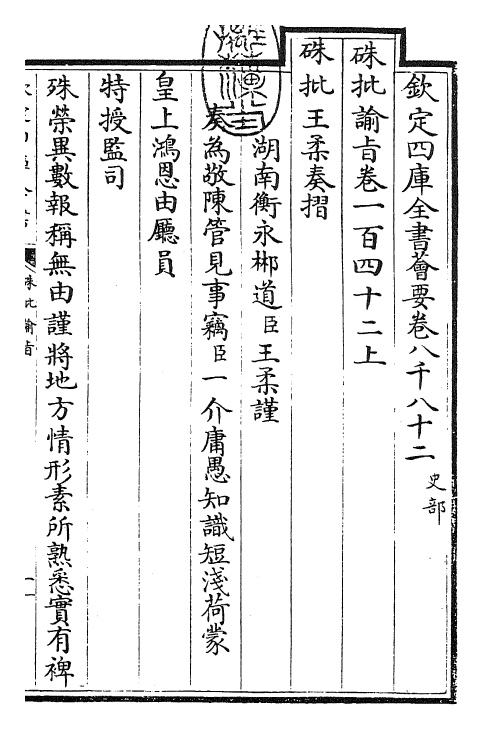 欽定四庫全書薈要卷八千八十二 史部
硃批諭旨卷一百四十二上
硃批王柔奏摺
湖南衡永郴道臣王柔謹
奏為敬陳管見事竊臣一介庸愚知識短淺荷蒙
皇上鴻恩由廳員
特授監司
殊榮異數報稱無由謹將地方情形素所熟悉實有裨
硃批諭旨
一